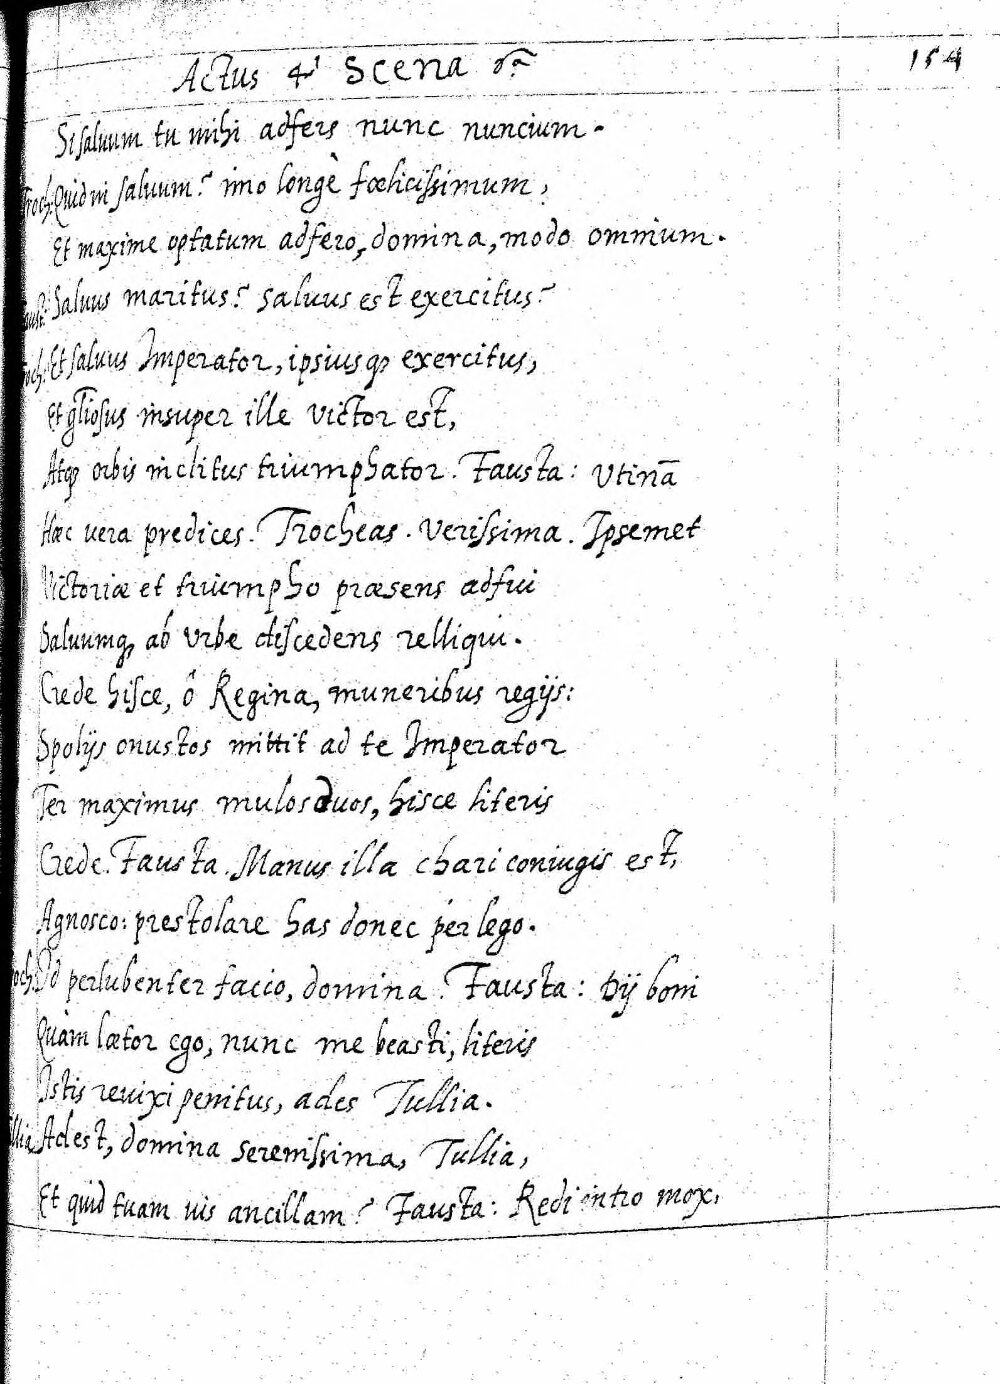 154
Actus 4ꝰ Scena 8ᵃ
Si saluum tu mihi adfers nunc nuncium.
Troch: Quid ni saluum? imo longè fœlicissimum,
Et maxime optatum adfero, domina, modo omnium.
Faust: Saluus maritus? saluus est exercitus?
Troch: Et saluus Imperator, ipsiusqꝫ exercitus,
Et gl̃iosus insuper ille victor est,
Atqꝫ orbis inclitus triumphator. Fausta: Utinã
Hæc vera predices. Trocheas. Verissima. Ipsemet
Victoriæ et triumpho præsens adfui
Saluumqꝫ ab vrbe discedens relliqui.
Crede hisce, ô Regina, muneribus regijs:
Spolijs onustos mittit ad te Imperator
Ter maximus mulos duos, hisce literis
Crede. Fausta. Manus illa chari coniugis est,
Agnosco: prestolare has donec perlego.
Troch: Id perlubenter facio, domina. Fausta: Dij boni
Quàm lætor ego, nunc me beasti, literis
Istis reuixi penitus, ades Tullia.
Tullia Adest, domina serenissima, Tullia,
Et quid tuam uis ancillam? Fausta: Redi intro mox,